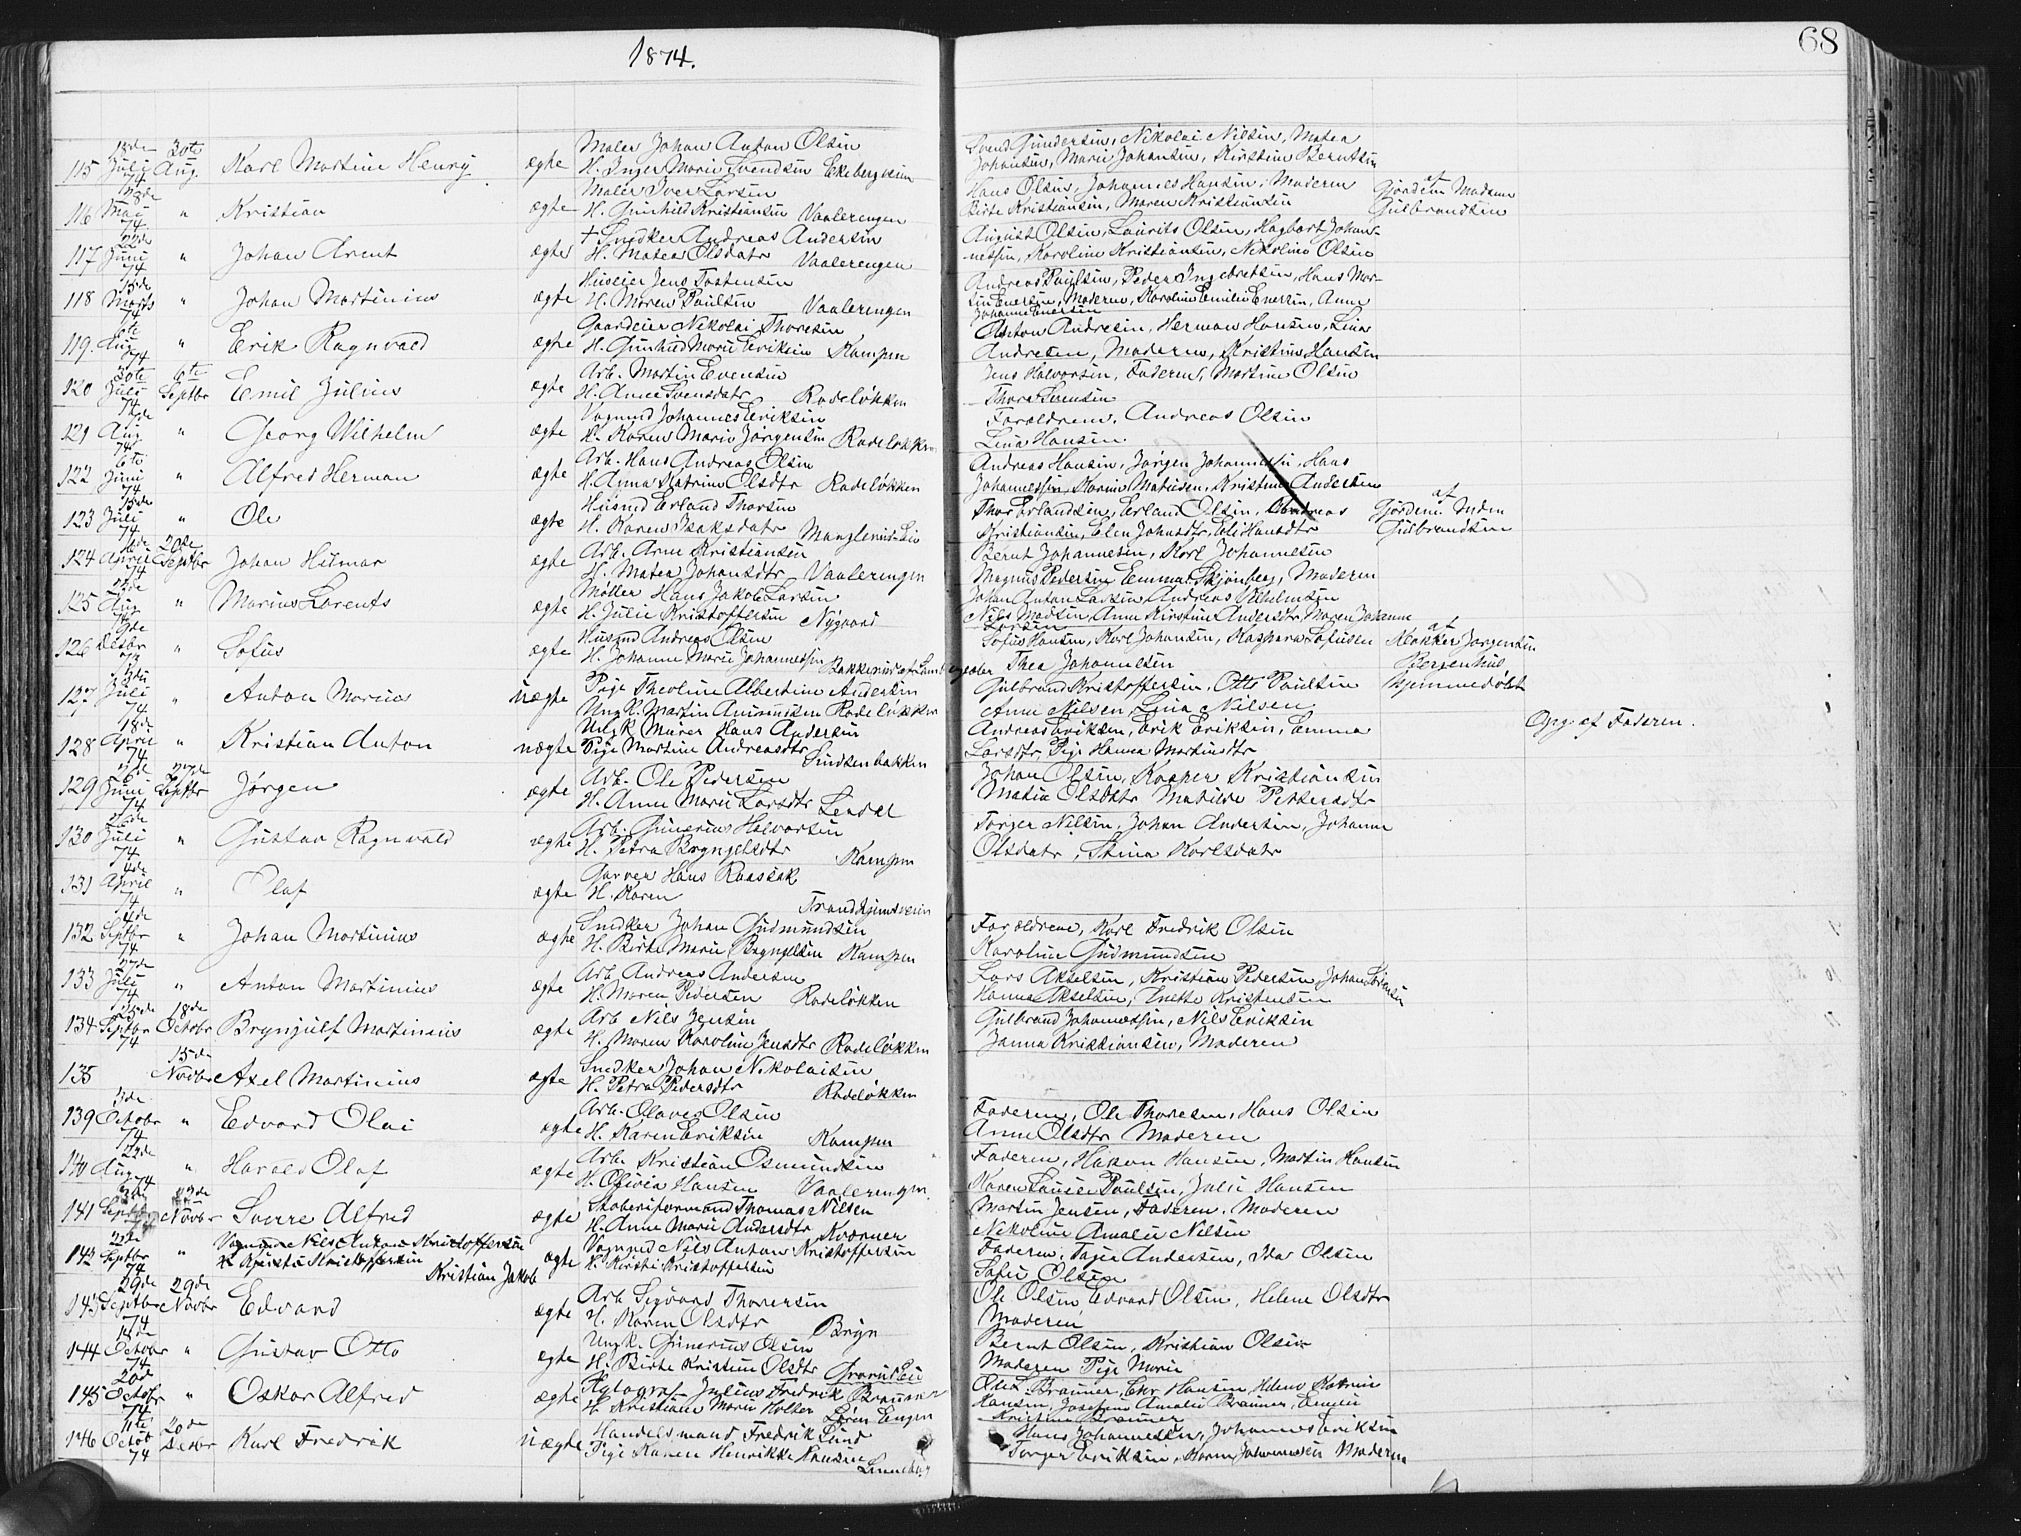 1874.
68
13de 30te Maler Johan Anton Olsen Svend Gundersen, Nikolai Nilsen, Matea
115 Juli Aug. Karl Martin Henry ægte H. Inger Marie Svendsen Ekebergveien Johansen, Marie Johansen, Kirstine Berntsen
74
28de Maler Iver Larsen Hans Olsen, Johannes Hansen, Moderen af
116 Mai " Kristian ægte H. Gunhild Kristiansen Vaalerengen Birte Kristiansen, Maren Kristiansen Gjordem Madam Gulbrandsen
74
22de + Snedker Andreas Andersen August Olsen, Laurits Olsen, Hagbart Johan-
117 Juni " Johan Arent ægte H. Matea Olsdatr Vaalerengen nessen, Karoline Kristiansen, Nikoline Olsen
74
13de Huseier Jens Tostensen Andreas Paulsen, Peder Ingebretsen, Hans Mor-
118 Marts " Johan Martinius ægte H. Maren Paulsen Vaalerengen tin Enersen, Moderen, Karoline Emilie Enersen, Anne
74 Johanne Enersen
6te Gaardeier Nikolai Thoresen Anton Andresen, Herman Hansen, Lina
119. Aug " Erik Ragnvald ægte H. Gunhild Marie Eriksen Kampen Andresen, Moderen, Kristine Hansen
74
30te 6te Arb. Martin Evensen Jens Halvorsen, Faderen, Martine Olsen
120 Juli Septbr Emil Julius ægte H. Anne Svensdatr Rodeløkken Thora Sørensen
74
Vognmd Johannes Eriksen Forældrene, Andreas Olsen
121 Aug " Georg Wilhelm ægte H. Karen Marie Jørgensen Rodeløkken Lina Hansen.
74
6te Arb. Hans Andreas Olsen Andreas Hansen, Jørgen Johannessen, Hans
122 Juni " Alfred Herman ægte H. Anna Katrine Olsdtr Rodeløkken Johannessen, Karine Matisen, Kristine Andersen
74
13de Husmd Erland Thorsen Thor Erlandsen, Erland Olsen, Andreas af
123 Juli " Ole ægte H. Karen Isaksdatr Manglerud-Eie Kristiansen, Elen Johnsdtr, Eli Hansdtr Gjordem. Inden Gulbrandsen
74
20de Arb. Arne Kristiansen Bernt Johannesen, Karl Johannesen
124 April Septbr Johan Hilmar ægte H. Matea Johansdtr Vaalerengen Magnus Pedersen Emma Skjønberg, Moderen
74
Møller Hans Jakob Larsen Johan Anton Larsen Andreas Vilhelmsen
125 Aug " Marius Lorents ægte H. Julie Kristoffersen Nygaard Nils Madsen, Anne Kirstine Andersdtr, Maren Johanne
74 Larsen
Husmd Andreas Olsen Sofus Hansen, Karl Johansen, Kaspara Sofusen af
126 Desbr " Sofus ægte H. Johanne Marie Johannessen Thea Johannesen Klokker Jørgensen hjemmedøbt
73
Pige Theoline Albertine Andersen Gulbrand Kristoffersen, Otto Paulsen
127 Juli " Anton Marius uægte Ung K. Martin Amundsen Rodeløkken Anne Nilsen, Lina Nilsen
74
18de Ungk Murer Hans Andersen Andreas Eriksen, Erik Eriksen, Emma
128 April " Kristian Anton uægte Pige Martine Andreasdtr Svindsenbakken Larsdtr, Pige Hanna Martinsdtr Opg. af Faderen.
74
27de Arb. Ole Pedersen Johan Olsen, Kasper Kristiansen
129 Juni Septbr Jørgen ægte H. Anne Marie Larsdtr Leirdal Matia Olsdatr Matilde Pettersdtr
74
26de Arb. Gunerius Halvorsen Torger Nilsen, Johan Andersen, Johanne
130 Juli " Gustav Ragnvald ægte H. Petra Bryngelsdtr Kampen Olsdatr, Stina Karlsdatr
74
4de Garver Hans Raastak
131 April " Olaf ægte H. Karen Trondhjemsveien
74
4de Snedker Johan Gudmundsen Forældrene, Karl Fredrik Olsen
132 Septbr " Johan Martinius ægte H. Birte Marie Bryngelsen Kampen Karoline Gudmundsen
74
27de Arb Andreas Andersen Lars Akselsen, Kristian Pedersen, Johan Sørensen
133 Juli " Anton Martinius ægte H. Maren Pedersen Rodeløkken Hanna Akselsen, Enette Kristensen
74
18de Arb Nils Jensen Gulbrand Johannessen, Nils Eriksen
134 Septbr Octobr Brynjulf Martinius ægte H. Maren Karoline Jensdtr Rodeløkken Janna Kristiansen, Moderen
74
15de Snedker Johan Nikolaisen
135 Novbr Axel Martinius ægte H. Petra Pedersdtr Rodeløkken
Arb. Olaves Olsen Faderen, Ole Thoresen, Hans Olsen
139 Octobr " Edvard Olai ægte H. Karen Eriksen Kampen Anne Olsdtr Moderen
74
Arb. Kristian Osmundsen Faderen, Hakon Hansen, Martin Hansen
140 Aug " Harald Olaf ægte H. Olivia Hansen Vaalerengen. Karen Lausen Poulsen, Julie Hansen
74
Skoberiformand Thomas Nilsen Martin Jensen, Faderen, Moderen
141 Septbr Novbr Sverre Alfred ægte H. Anne Marie Andersdtr Kværner Nikoline Amalie Nilsen
Vognmd Nils Anton Kristoffersen Vognmd Nils Anton Kristoffersen Faderen, Tagia Andersen, Olsen
142 Septbr " H. Kjersti Kristoffersen Kristian Jakob ægte H. Kirsti Kristoffersen Sofie Olsen
74
29de 29de Arb Sigvard Thoresen Ole Olsen, Edvard Olsen, Helene Olsdtr
143 Septbr Novbr Edvard ægte H. Karen Olsdtr Bryn Moderen
74
Ungk. Gunerius Olsen Bernt Olsen, Kristian Olsen
144 Octobr " Gustav Otto ægte H. Birte Kristine Olsdtr Moderen Pige Marie
74
20de Xylograf Julius Fredrik Brauner Olaf Brauner, Chr Hansen, Helene Katrine
145 Octobr " Oskar Alfred ægte H. Kristiane Marie Holter Søren Engen Hansen, Josefine Amalie Brauner, Emilie
74 Kristine Brauner
11te 20de Handelsmand Fredrik Lund Hans Johannessen, Johannes Eriksen
146 Octobr Desbr Karl Fredrik uægte Pige Karen Henrikke Hansen Torger Eriksen, Karen Johannessen Moderen
74